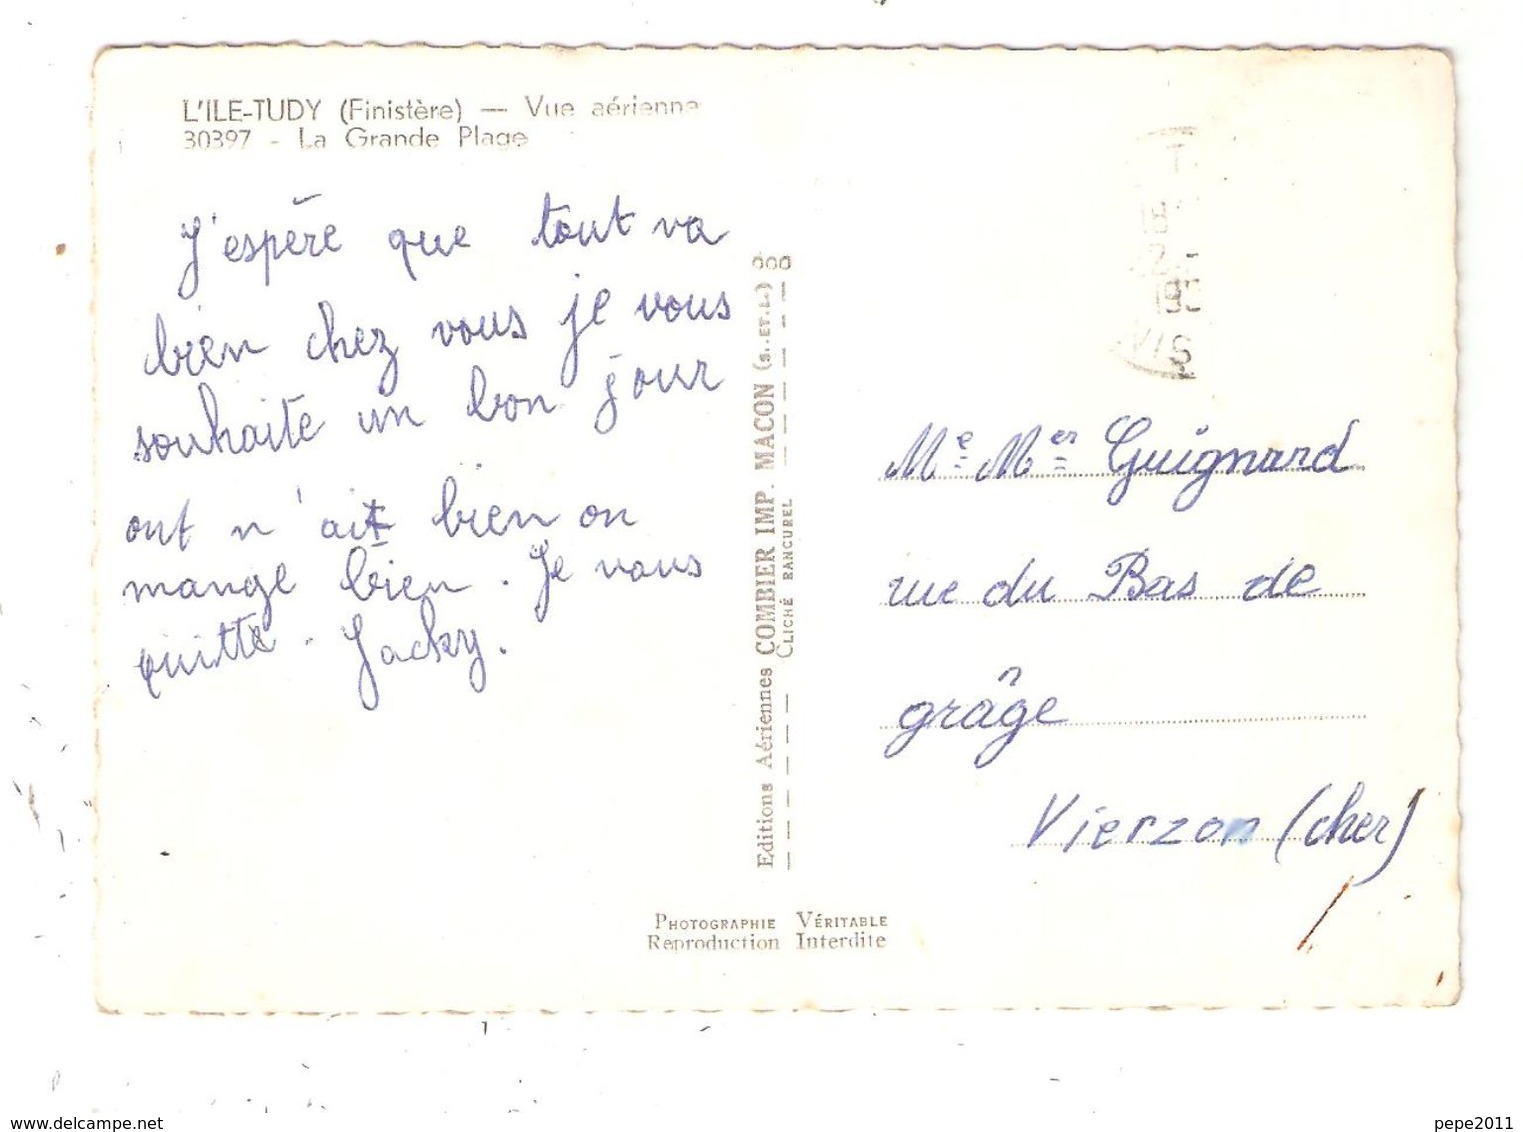 L'ILE-TUDY (Finistère) — Vue aérienne
30397 - La Grande Plage
J'espère que tout va
bien chez vous je vous
souhaite un bon jour
ont n'ait bien on
mange bien. Je vous
quitte. Jacky.
Editions Aériennes COMBIER IMP. MACON (S.-ET-L.)
CLICHÉ RANCUREL
PHOTOGRAPHIE VÉRITABLE
Reproduction Interdite
Me Mer Guignard
rue du Bas de
grâge
Vierzon (cher)
www.delcampe.net
pepe2011